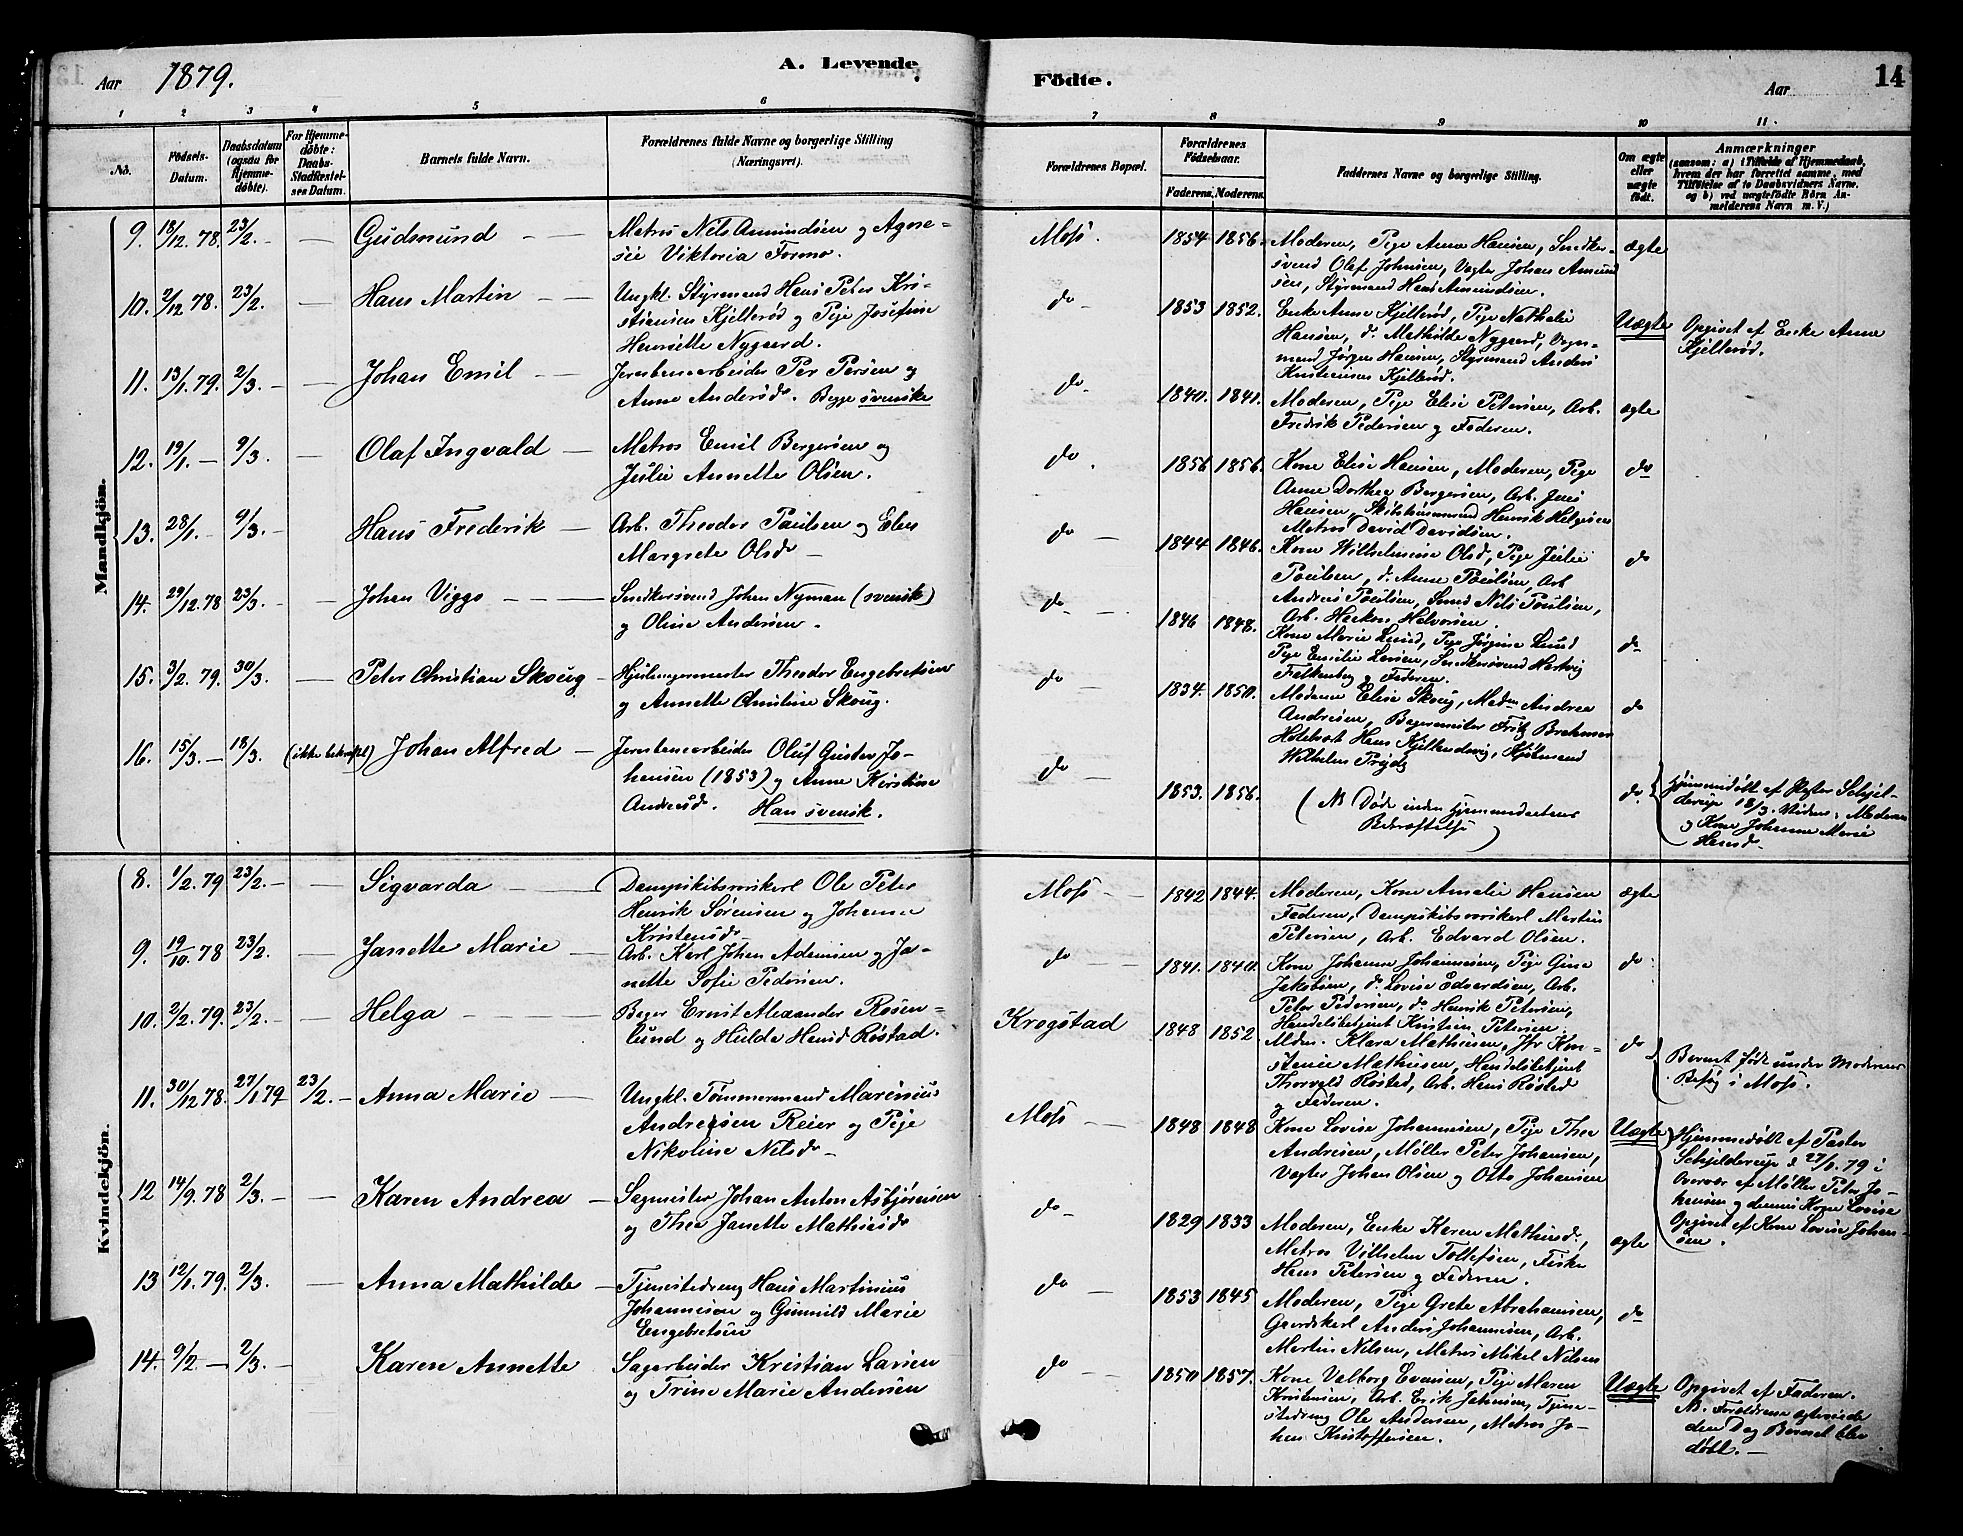 Aar 1879. A. Levende Födte. Aar 14
1 2 3 4 5 6 7 8 9 10 11.
No. Födsels-Datum. Daabsdatum (ogsaa for Hjemmedøbte). For Hjemmedøbte: Daabs-Stadfæstelses Datum. Barnets fulde Navn. Forældrenes fulde Navne og borgerlige Stilling (Næringsvei). Forældrenes Bopæl. Forældrenes Födselsaar. Faderens. Moderens. Faddernes Navne og borgerlige Stilling. Om ægte eller uægte født. Anmærkninger (saasom: a) i Tilfælde af Hjemmedaab, hvem der har forrettet samme, med Tilføielse af to Daabsvidners Navne, og b) ved uægtefødte Börn Anmelderens Navn m. V.)
Mandkjön.
9. 18/12. 78. 23/2. — — Gudmund — — Matros Nils Amundsen og Agne-
sie Viktoria Formo.
Moss. 1854. 1856. Moderen, Pige Anna Hansen, Snedker-
svend Olaf Johnsen, Vogter Johan Amund
sen, Styrmand Hans Amundsen.
ægte
10. 2/12 78. 23/2. — Hans Martin — — Ungkl. Styrmand Hans Peter Kri-
stiansen Kjellerød og Pige Josefine
Henriette Nygaard.
do 1853 1852. Enke Anne Kjellerød, Pige Nathalie
Hansen, do. Mathilde Nygaard, Vogn-
mand Jørgen Hansen, Styrmand Anders
Kristiansen Kjellerød.
Uægte Opgivet af Enke Anne
Kjellerød.
11. 13/1. 79. 2/3. — — Johan Emil — — Jernbanearbeider Per Persen og
Anne Andersd. Begge svenske
do 1840. 1841. Moderen, Pige Elise Petersen, Arb.
Fredrik Pedersen og Faderen.
ægte
12. 19/1. — 9/3. — — Olaf Ingvald — Matros Emil Bergersen og
Julie Annette Olsen.
do. 1856 1856. Kone Elise Hansen, Moderen, Pige
Anne Dorthea Bergersen, Arb. Jens
Hansen, Skibstømmermand Henrik Helgesen
Matros David Davidsen.
do
13. 28/1. — 9/3. — — Hans Frederik — Arb. Theodor Paulsen og Elen
Margrete Olsd. —
do — 1844 1846. Kone Wilhelmine Olsd, Pige Julie
Poulsen, d. Anne Poulsen, Arb
Andreas Poulsen, Smed Nils Poulsen,
Arb. Haakon Halvorsen.
do
14. 29/12. 78 23/3. — — Johan Viggo — — — Snedkersvend Johan Nyman (svensk)
og Oline Andersen.
do — — 1846 1848. Kone Marie Lund, Pige Jørgine Lund
Pige Emilie Larsen, Snedkersvend Hartvig
Falkenberg og Faderen.
do
15. 3/2. 79. 30/3. — Peter Christian Skoug — Theodor Engebretsen
og Annette Christine Skoug.
do — 1834. 1850. Madame Elise Skoug, Madm Andrea
Andresen, Bagermester Fritz
Hans Kjellandvig,
Wilhelm
do
16. 15/3. — 18/3. (ikke bekræftet) Johan Alfred — Jernbanearbeider Oluf Gustav Jo-
hansen (1853) og Anne Kirstine
Andreasd. Han svensk.
do — 1853. 1856. (NB Døde inden Hjemmedaabens
Bekræftelse)
do. Hjemmedøbt af Pastor Schjel-
derup 18/3. Vidner: Moderen
og Kone Johanne Marie
Hansd.
Kvindekjön.
8. 1/2. 79 23/2. — — Sigvarda — — Dampskibsværkarl Ole Peter
Henrik Sørensen og Johanne
Kristensd.
Moss — — 1842 1844. Moderen, Kone Amalie Hansen
Faderen, Martin
Petersen, Arb. Edvard Olsen.
ægte
9. 19/10. 78 23/2. — Janette Marie — Arb. Karl Johan Adamsen og Ja-
nette Sofie Pedersen.
do — 1841. 1840. Kone Johanne Johannesen, Pige Gina
Jakobsen, d. Lovise Edvardsen, Arb.
Peter Pedersen, do Henrik Petersen,
Handelsbetjent Kristian Petersen.
do
10. 2/2. 79. 23/2. — — Helga — — — Bager Ernst Alexander Rosen-
lund og Hulda Hansd Røstad.
Krogstad 1848 1852 Mdm. Klara Mathiesen, Jfr Kon-
stanse Mathiesen, Handelsbetjent
Thorvald Røstad, Arb. Hans Røstad
og Faderen.
do Barnet født under Moderens
Besøg i Moss.
11. 30/12 78. 27/1 79 23/2. — Anna Marie — Ungkl. Tømmermand Marenius
Andreasen Reier og Pige
Nikoline Nilsd. —
Moss — — 1848 1848 Kone Lovise Johannesen, Pige Thea
Andresen, Møller Peter Johansen,
Vogter Johan Olsen og Otto Johansen
Uægte Hjemmedøbt af Pastor
Schjelderup d. 27/1. 79 i
Overvær af Møller Peter Jo-
hansen og dennes Kone Lovise
Opgivet af Kone Lovise Johan-
sen.
12 14/9. 78 2/3. — — Karen Andrea — Sagmester Johan Anton Asbjørnsen
og Thea Janette Mathisd.
do — 1829 1833 Moderen, Enke Karen Mathisd.,
Matros Vilhelm Tollefsen, Fisker
Hans Petersen og Faderen.
ægte
13 12/1. 79. 2/3. — Anna Mathilde — Tjenestedreng Hans Martinius
Johannesen og Gunnild Marie
Engebretsen
do 1853 1845 Moderen, Pige Grete Abrahamsen,
Gaardskarl Anders Johannesen, Arb.
Martin Nilsen, Matros Mikal Nilsen
do
14. 9/2 — 2/3. — Karen Annette Sagarbeider Kristian Larsen
og Trine Marie Andersen
do — — 1850 1857. Kone Valborg Evensen, Pige Maren
Kristensen, Arb. Erik Johnsen, Tjene-
stedreng Ole Andersen, Matros Jo-
han Kristoffersen.
Uægte Opgivet af Faderen.
NB. Forældrene ægteviede
den Dag Barnet blev
døbt. —